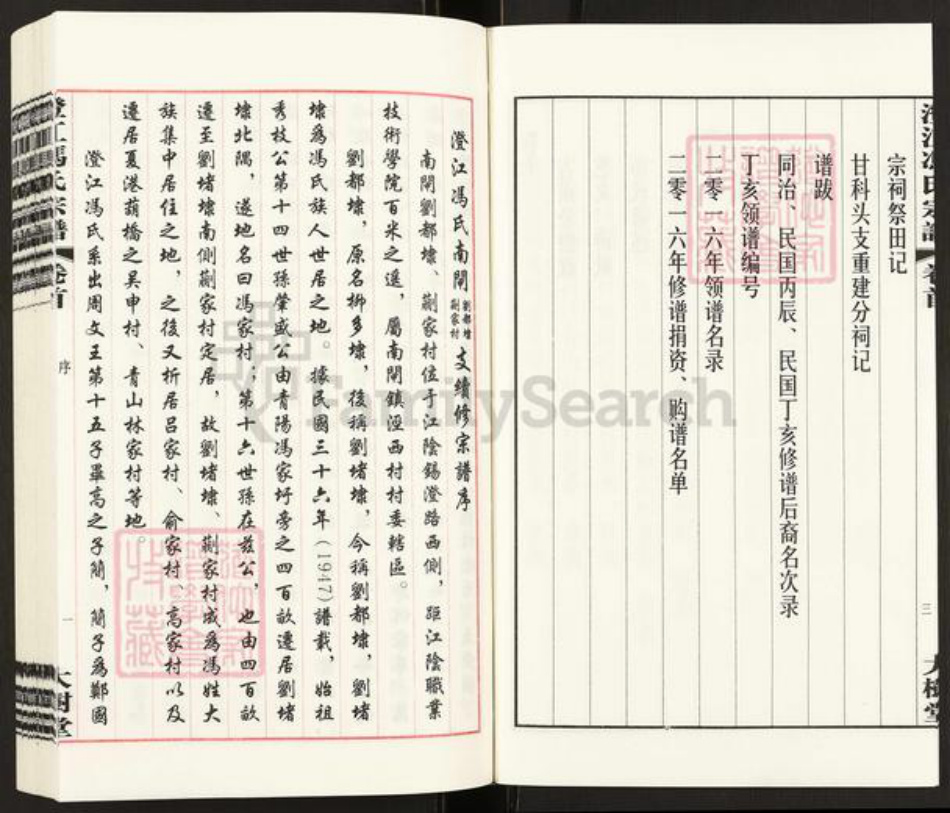 宗祠祭田记
甘科头支重建分祠记
谱跋
同治、民国丙辰、民国丁亥修谱后裔名次录
丁亥领谱编号
二零一六年领谱名录
二零一六年修谱捐资、购谱名单
三
大樹堂
澄江馮氏南閘劉都埭蒯家村支續修宗譜序
南閘劉都埭、蒯家村位于江陰錫澄路西側，距江陰職業
技術學院百米之遥，屬南閘鎮涇西村村委轄區。
劉都埭，原名柳多埭，後稱劉堵埭，今稱劉都埭，劉堵
埭爲馮氏族人世居之地。據民國三十六年（1947）譜載，始祖
秀枝公第十四世孫肇盛公由青陽馮家圩旁之四百畝遷居劉堵
埭北隅，遂地名曰馮家村；第十六世孫在兹公，也由四百畝
遷至劉堵埭南側蒯家村定居，故劉堵埭、蒯家村成爲馮姓大
族集中居住之地，之後又析居吕家村、俞家村、高家村以及
遷居夏港葫橋之吴申村、青山林家村等地。
澄江馮氏系出周文王第十五子畢高之子簡，簡子爲鄭國
澄江馮氏宗譜
卷首
序
一
大樹堂
FamilySearch